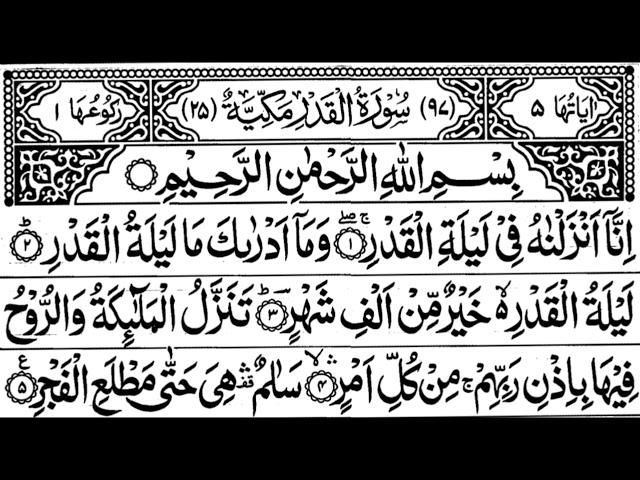 اٰیَاتُهَا ٥ (٩٧) سُوْرَةُ الْقَدْرِ مَكِّيَّةٌ (٢٥) رُكُوْعُهَا ١
بِسْمِ اللهِ الرَّحْمٰنِ الرَّحِيْمِ
اِنَّاۤ اَنْزَلْنٰهُ فِیْ لَیْلَةِ الْقَدْرِ ۚۖ ١ وَمَاۤ اَدْرٰىكَ مَا لَیْلَةُ الْقَدْرِ ؕ ٢
لَیْلَةُ الْقَدْرِ ۙ٥ خَیْرٌ مِّنْ اَلْفِ شَهْرٍ ؕ ٣ تَنَزَّلُ الْمَلٰٓىِٕكَةُ وَالرُّوْحُ
فِیْهَا بِاِذْنِ رَبِّهِمْ ۚ مِنْ كُلِّ اَمْرٍ ۙۛ ٤ سَلٰمٌ ۛ۫ هِیَ حَتّٰى مَطْلَعِ الْفَجْرِ ٥ ع